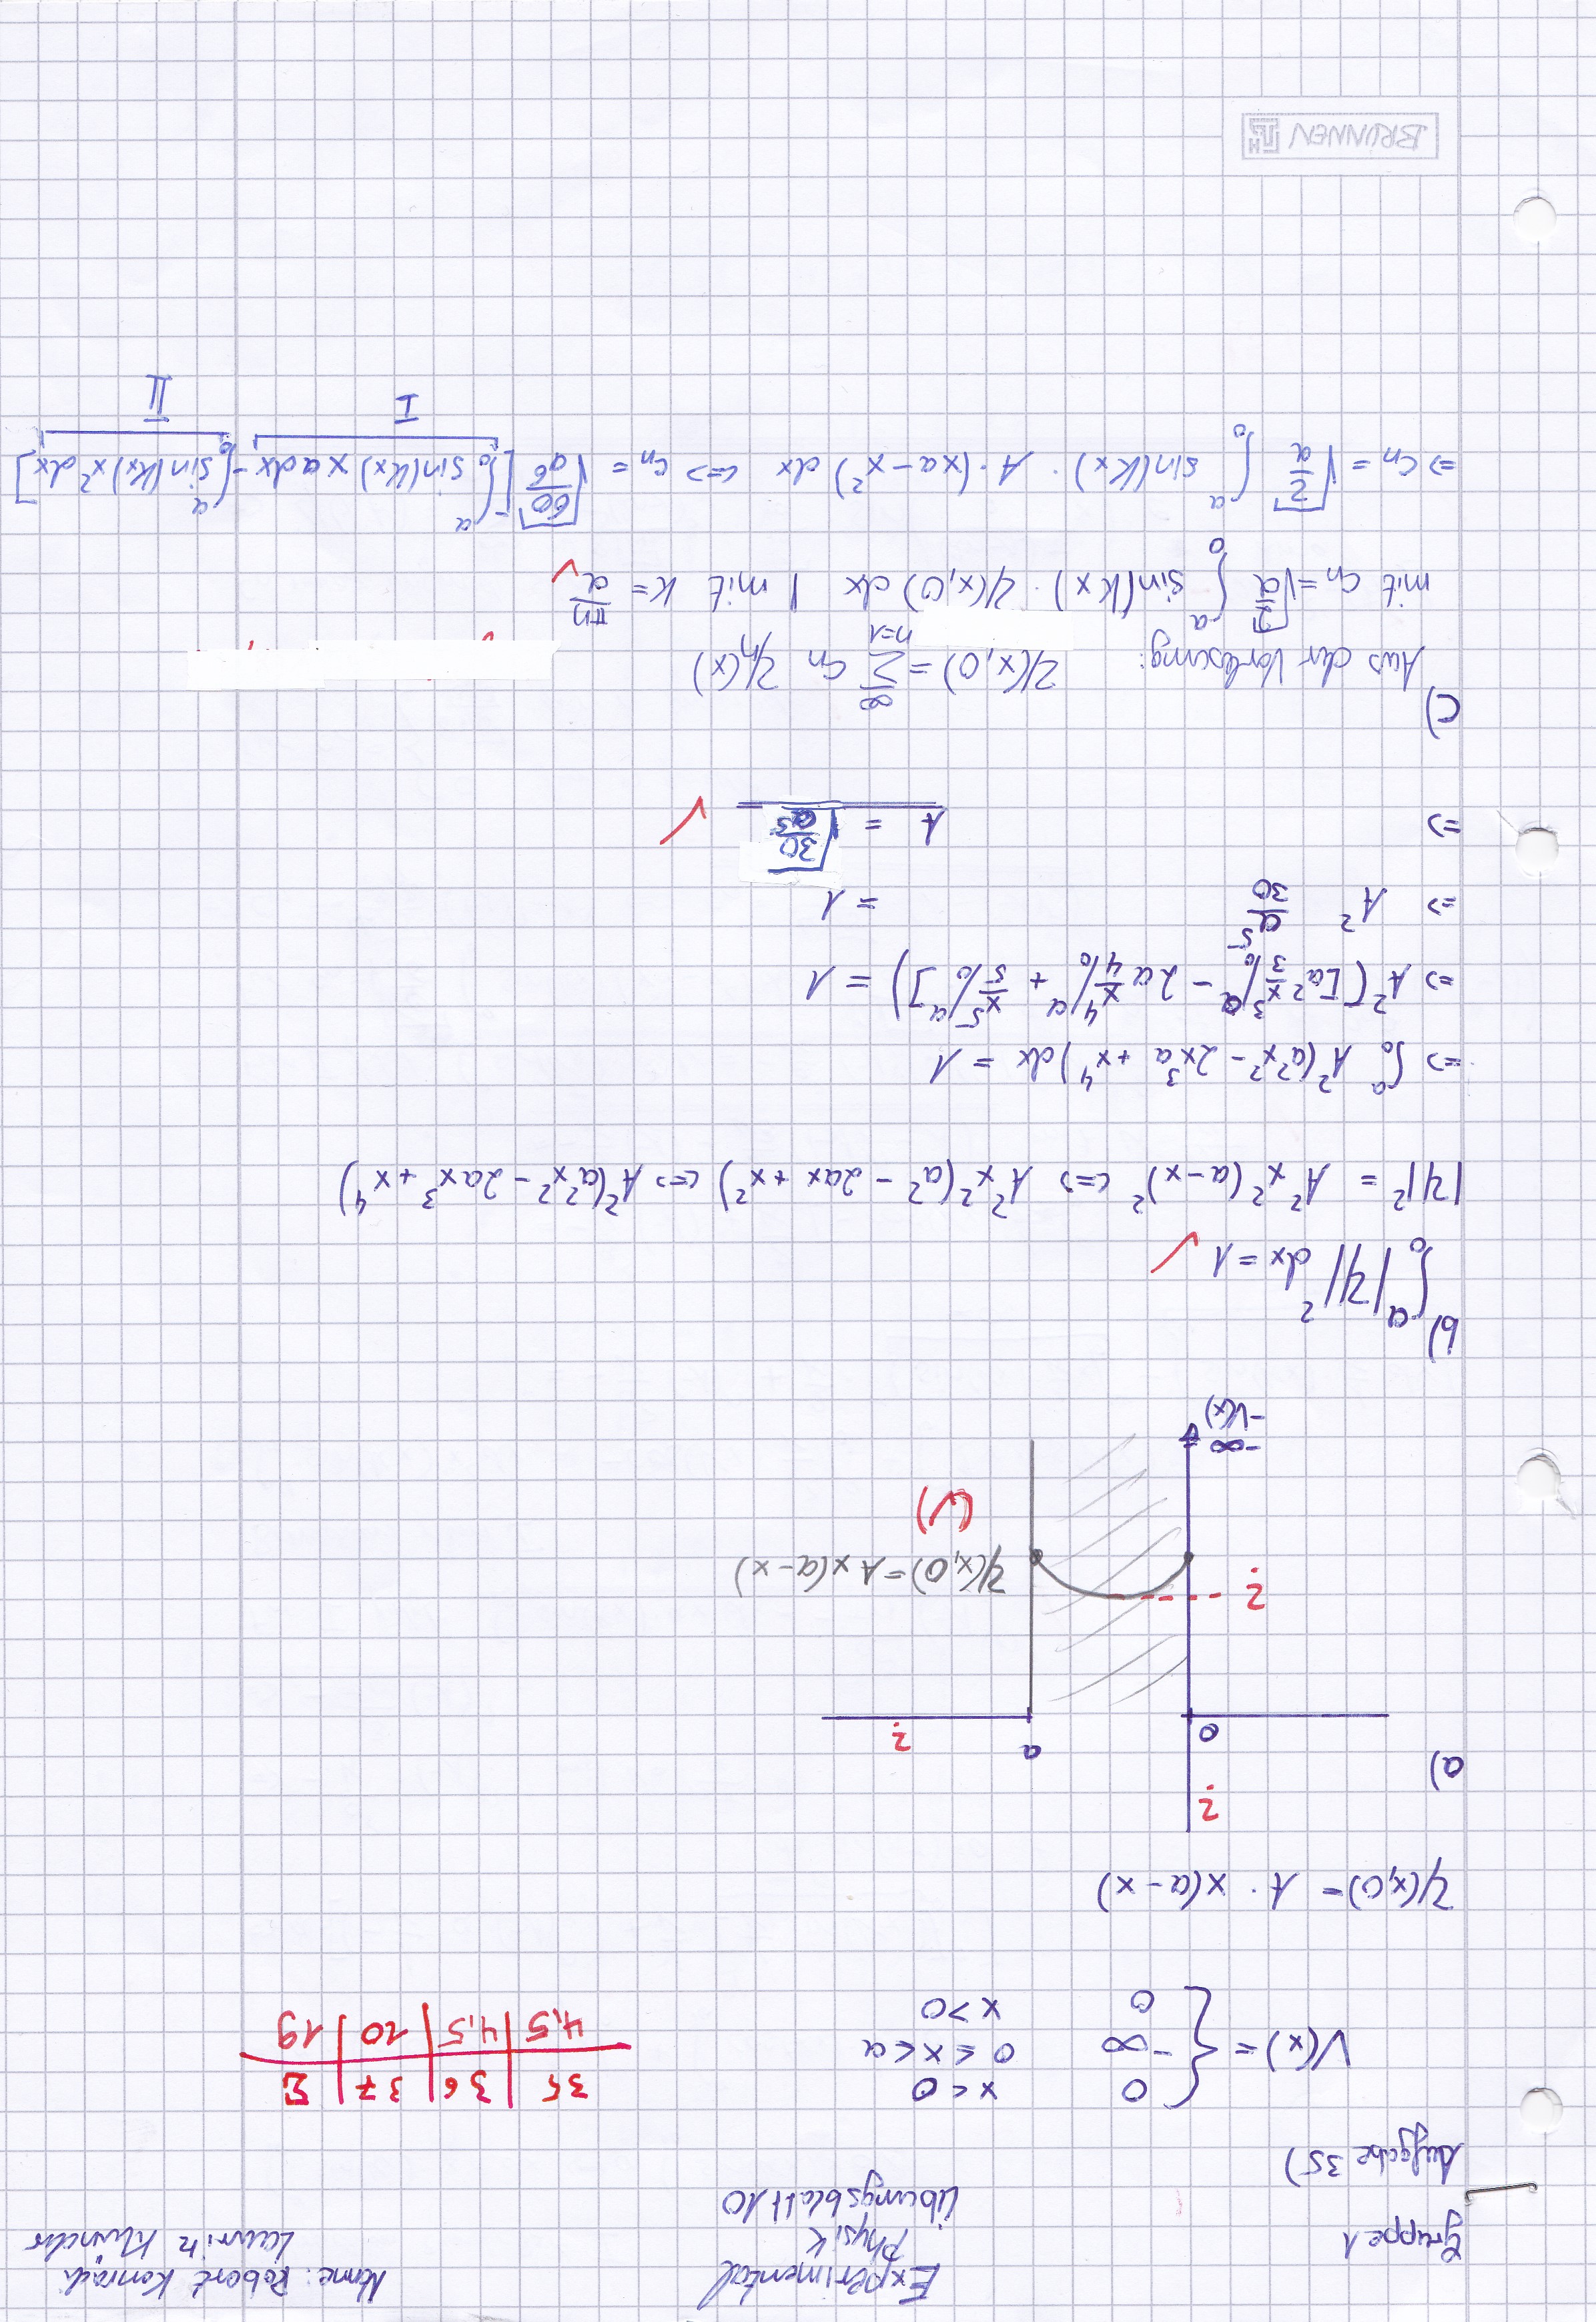 Experimental
Physik
Übungsblatt 10
Name: Robert Konrad
Lauritz
Gruppe 1
Aufgabe 35)
V(x) = { 0 x < 0
-∞ 0 ≤ x < a
0 x > 0
35 | 36 | 37 | Σ
4,5 | 4,5 | 10 | 19
Ψ(x,0) = A · x(a-x)
a)
?
0
a
?
?
Ψ(x,0) = A x(a-x)
(✓)
-∞
-V(x)
b)
∫₀ᵃ |Ψ|² dx = 1 ✓
|Ψ|² = A²x²(a-x)² <=> A²x²(a² - 2ax + x²) <=> A²(a²x² - 2ax³ + x⁴)
=> ∫₀ᵃ A²(a²x² - 2x³a + x⁴) dx = 1
=> A²([a² x³/3 |₀ᵃ - 2a x⁴/4 |₀ᵃ + x⁵/5 |₀ᵃ]) = 1
=> A² a⁵/30 = 1
=> A = √(30/a⁵) ✓
c)
Aus der Vorlesung: Ψ(x,0) = Σₙ₌₁^∞ cₙ Ψₙ(x)
mit cₙ = √(2/a) ∫₀ᵃ sin(Kx) · Ψ(x,0) dx | mit K = πn/a ✓
=> cₙ = √(2/a) ∫₀ᵃ sin(Kx) · A · (xa - x²) dx <=> cₙ = √(60/a⁶) [∫₀ᵃ sin(Kx) x a dx - ∫₀ᵃ sin(Kx) x² dx]
I
II
BRUNNEN